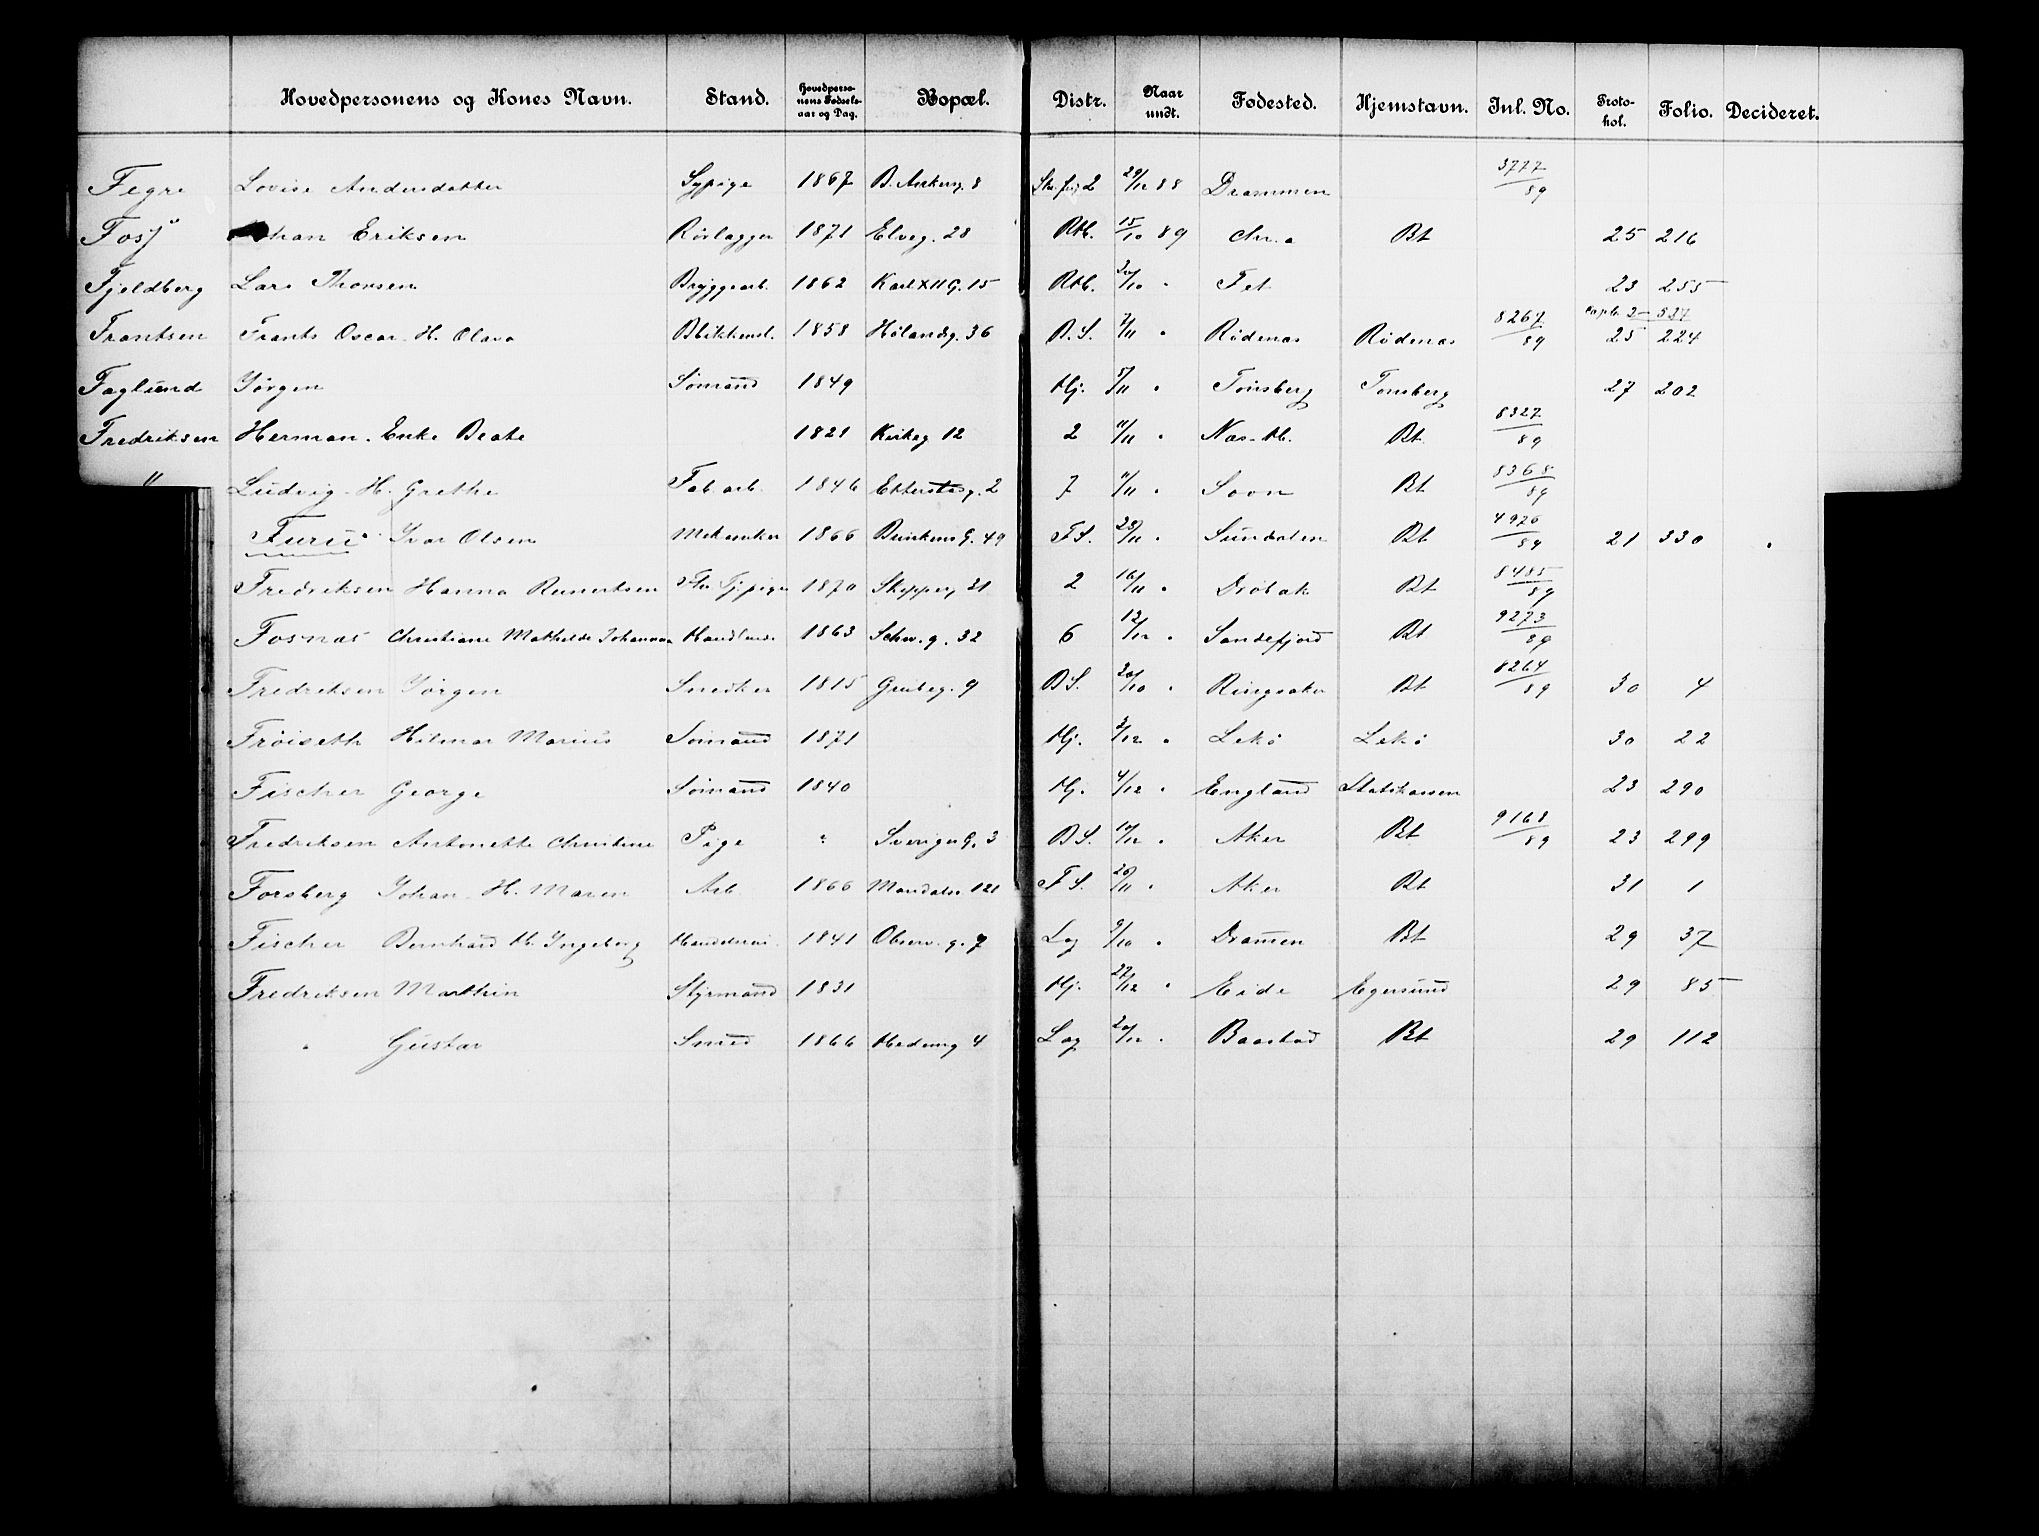 Hovedpersonens og Kones Navn. Stand. Hovedpersonens Fødselsaar og Dag. Bopæl. Distr. Naar undt. Fødested. Hjemstavn. Inl. No. Protokol. Folio. Decideret.
Fegre Lovise Andersdatter Sypige 1867 8 2 29/12 88 Drammen 3777/89
Fosj Johan Eriksen Rørlægger 1871 Elveg. 28 Rtb. 15/10 89 Chr.a Bt 25 216
Fjeldberg Lars Thorsen Bryggearb. 1862 Karl XII G. 15 Rtb. 30/10 " Fet 23 255
Frantsen Frants Oscar. H. Olava 1858 Hølandsg. 36 B.S. 7/11 " Rødenæs Rødenæs 8267/89 25 224
Faglund Jørgen Sømand 1849 Hj. 5/11 " Tønsberg Tønsberg 27 202
Fredriksen Herman. Enke Beate 1821 Kirkeg 12 2 11/11 " Næs. H. Bt 8327/89
" Ludvig. H. Grethe Fab. arb. 1846 Etterstadg. 2 7 11/11 " Soon Bt 8368/89
Furu Ivar Olsen Mekaniker 1866 G. 49 F.S. 28/11 " Sundalen Bt 4926/89 21 330
Fredriksen Hanna 1870 Skipperg 31 2 16/11 " Drøbak Bt 8485/89
Fosnæs Christiane Mathilde Johannsen 1863 Schw. g. 32 6 12/12 " Sandefjord Bt 9273/89
Fredriksen Jørgen Snedker 1815 Grubeg. 9 B.S. 20/10 " Ringsaker Bt 8264/89 30 4
Frøiseth Hilmar Marius Sømand 1871 Hj. 3/12 " Lekø Lekø 30 22
Fischer George Sømand 1840 Hj. 4/12 " England Statskassen 23 290
Fredriksen Antonette Christine Pige " Sveriges G. 3 B.S. 10/12 " Aker Bt 9168/89 23 299
Forsberg Johan. H. Maren Arb. 1866 Mandalsg 121 F.S. 26/11 " Aker Bt 31 1
Fischer Bernhard H. Ingeborg 1841 Observ. g. 7 Lag 9/10 " Dramen Bt 29 37
Fredriksen Marthin Styrmand 1831 Hj. 27/12 " Eide Egersund 29 85
" Gustav Smed 1866 Hedmg 4 Lag 20/12 " Baastad Bt 29 112